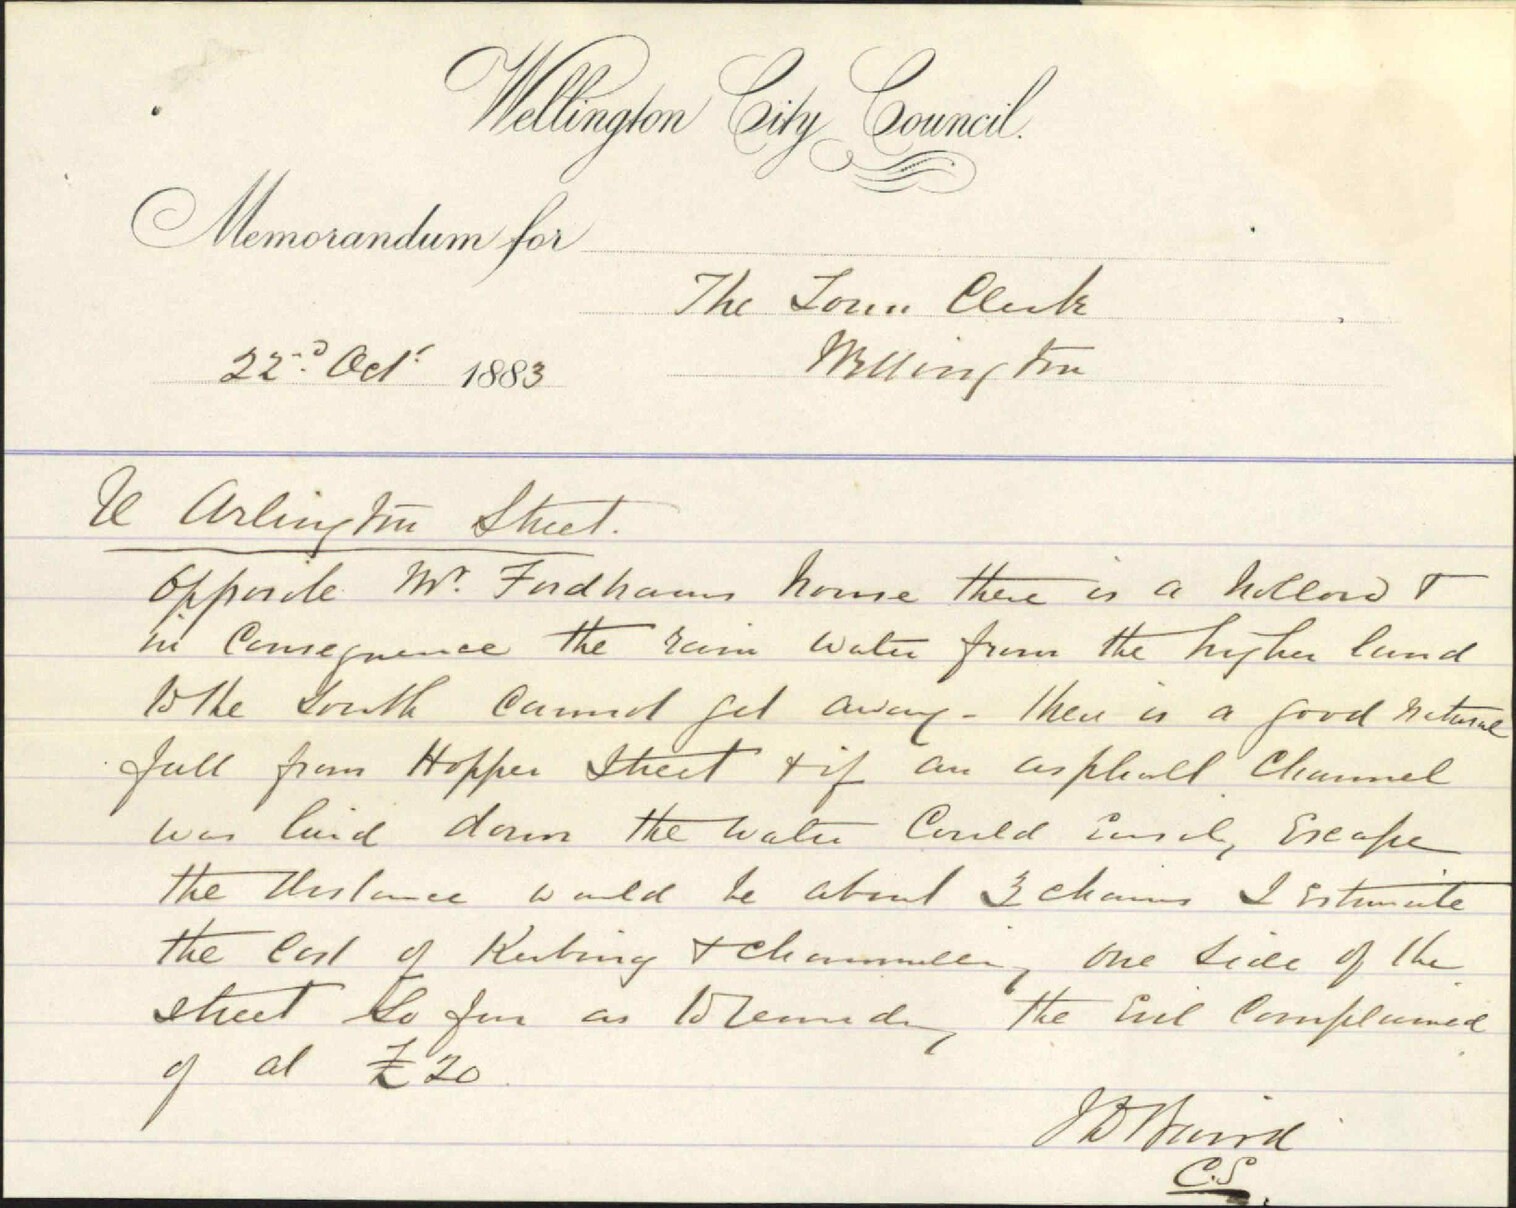 Wellington City Council.
Memorandum for
The Town Clerk
22nd Oct. 1883
Wellington
Re Arlington Street.
Opposite Mr. Fordhams house there is a hollow &
in Consequence the rain water from the higher land
to the South cannot get away - there is a good natural
fall from Hopper Street & if an asphalt Channel
was laid down the water Could Easily Escape
the distance would be about 3 chains I Estimate
the Cost of Kerbing & channelling one side of the
street So far as to remedy the Evil Complained
of at £20
J D Baird
C.S.